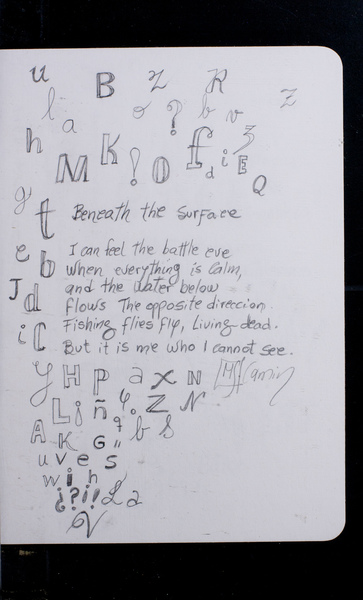 u B Z R
l o ? b v z
h a
M K ! O f d i E Z
Q
g t Beneath the surface
e b I can feel the battle eve
when everything is Calm,
J d and the water below
flows The opposite direccion.
i C Fishing flies fly, Living dead.
But it is me who I cannot see.
y H P a x N
L i ñ φ. Z N
A K G " q b S
u v e s
w i h
¿?¡! L a
V